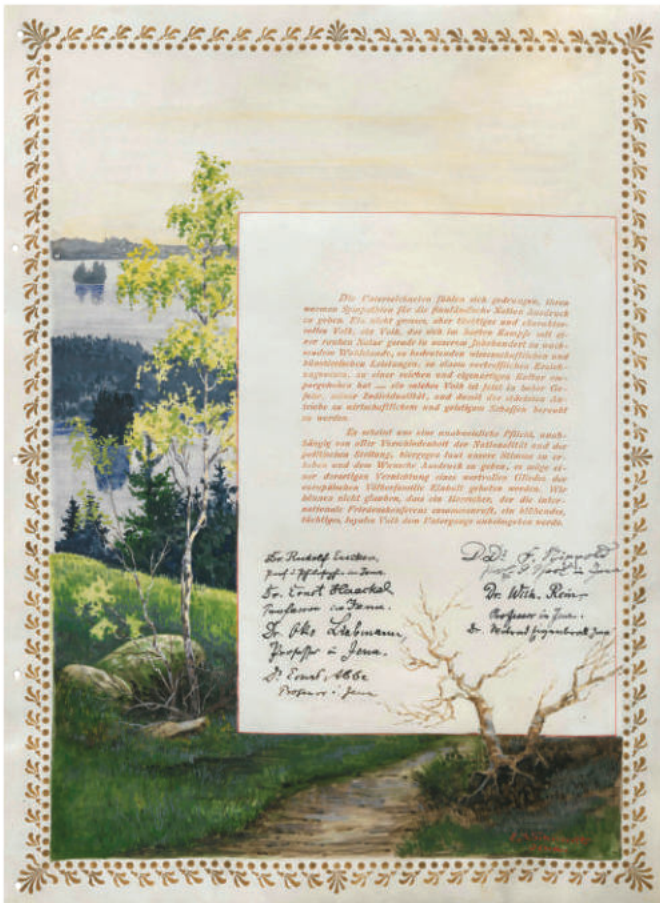 Die Unterzeichneten fühlen sich gedrungen, ihren
warmen Sympathien für die finnländische Nation Ausdruck
zu geben. Ein nicht grosses, aber tüchtiges und charakter-
volles Volk, ein Volk, das sich im harten Kampfe mit ei-
ner rauhen Natur gerade in unserem Jahrhundert zu wach-
sendem Wohlstande, zu bedeutenden wissenschaftlichen und
künstlerischen Leistungen, zu einem vortrefflichen Erzieh-
ungswesen, zu einer reichen und eigenartigen Kultur em-
porgehoben hat — ein solches Volk ist jetzt in hoher Ge-
fahr, seiner Individualität, und damit der stärksten An-
triebe zu wirtschaftlichem und geistigem Schaffen beraubt
zu werden.
Es scheint uns eine unabweisliche Pflicht, unab-
hängig von aller Verschiedenheit der Nationalität und der
politischen Stellung, hiergegen laut unsere Stimme zu er-
heben und dem Wunsche Ausdruck zu geben, es möge ei-
ner derartigen Vernichtung eines wertvollen Gliedes der
europäischen Völkerfamilie Einhalt geboten werden. Wir
können nicht glauben, dass ein Herrscher, der die inter-
nationale Friedenskonferenz zusammenruft, ein blühendes,
tüchtiges, loyales Volk dem Untergange anheimgeben werde.
Dr. Rudolf Eucken
Prof. d. Philosophie in Jena
Dr. Ernst Haeckel
Professor in Jena.
Dr. Otto Liebmann
Professor in Jena.
Dr. Ernst Abbe
Professor in Jena
D. Dr. F. Nippold
Prof. in Jena
Dr. Wilh. Rein
Professor in Jena.
Dr.